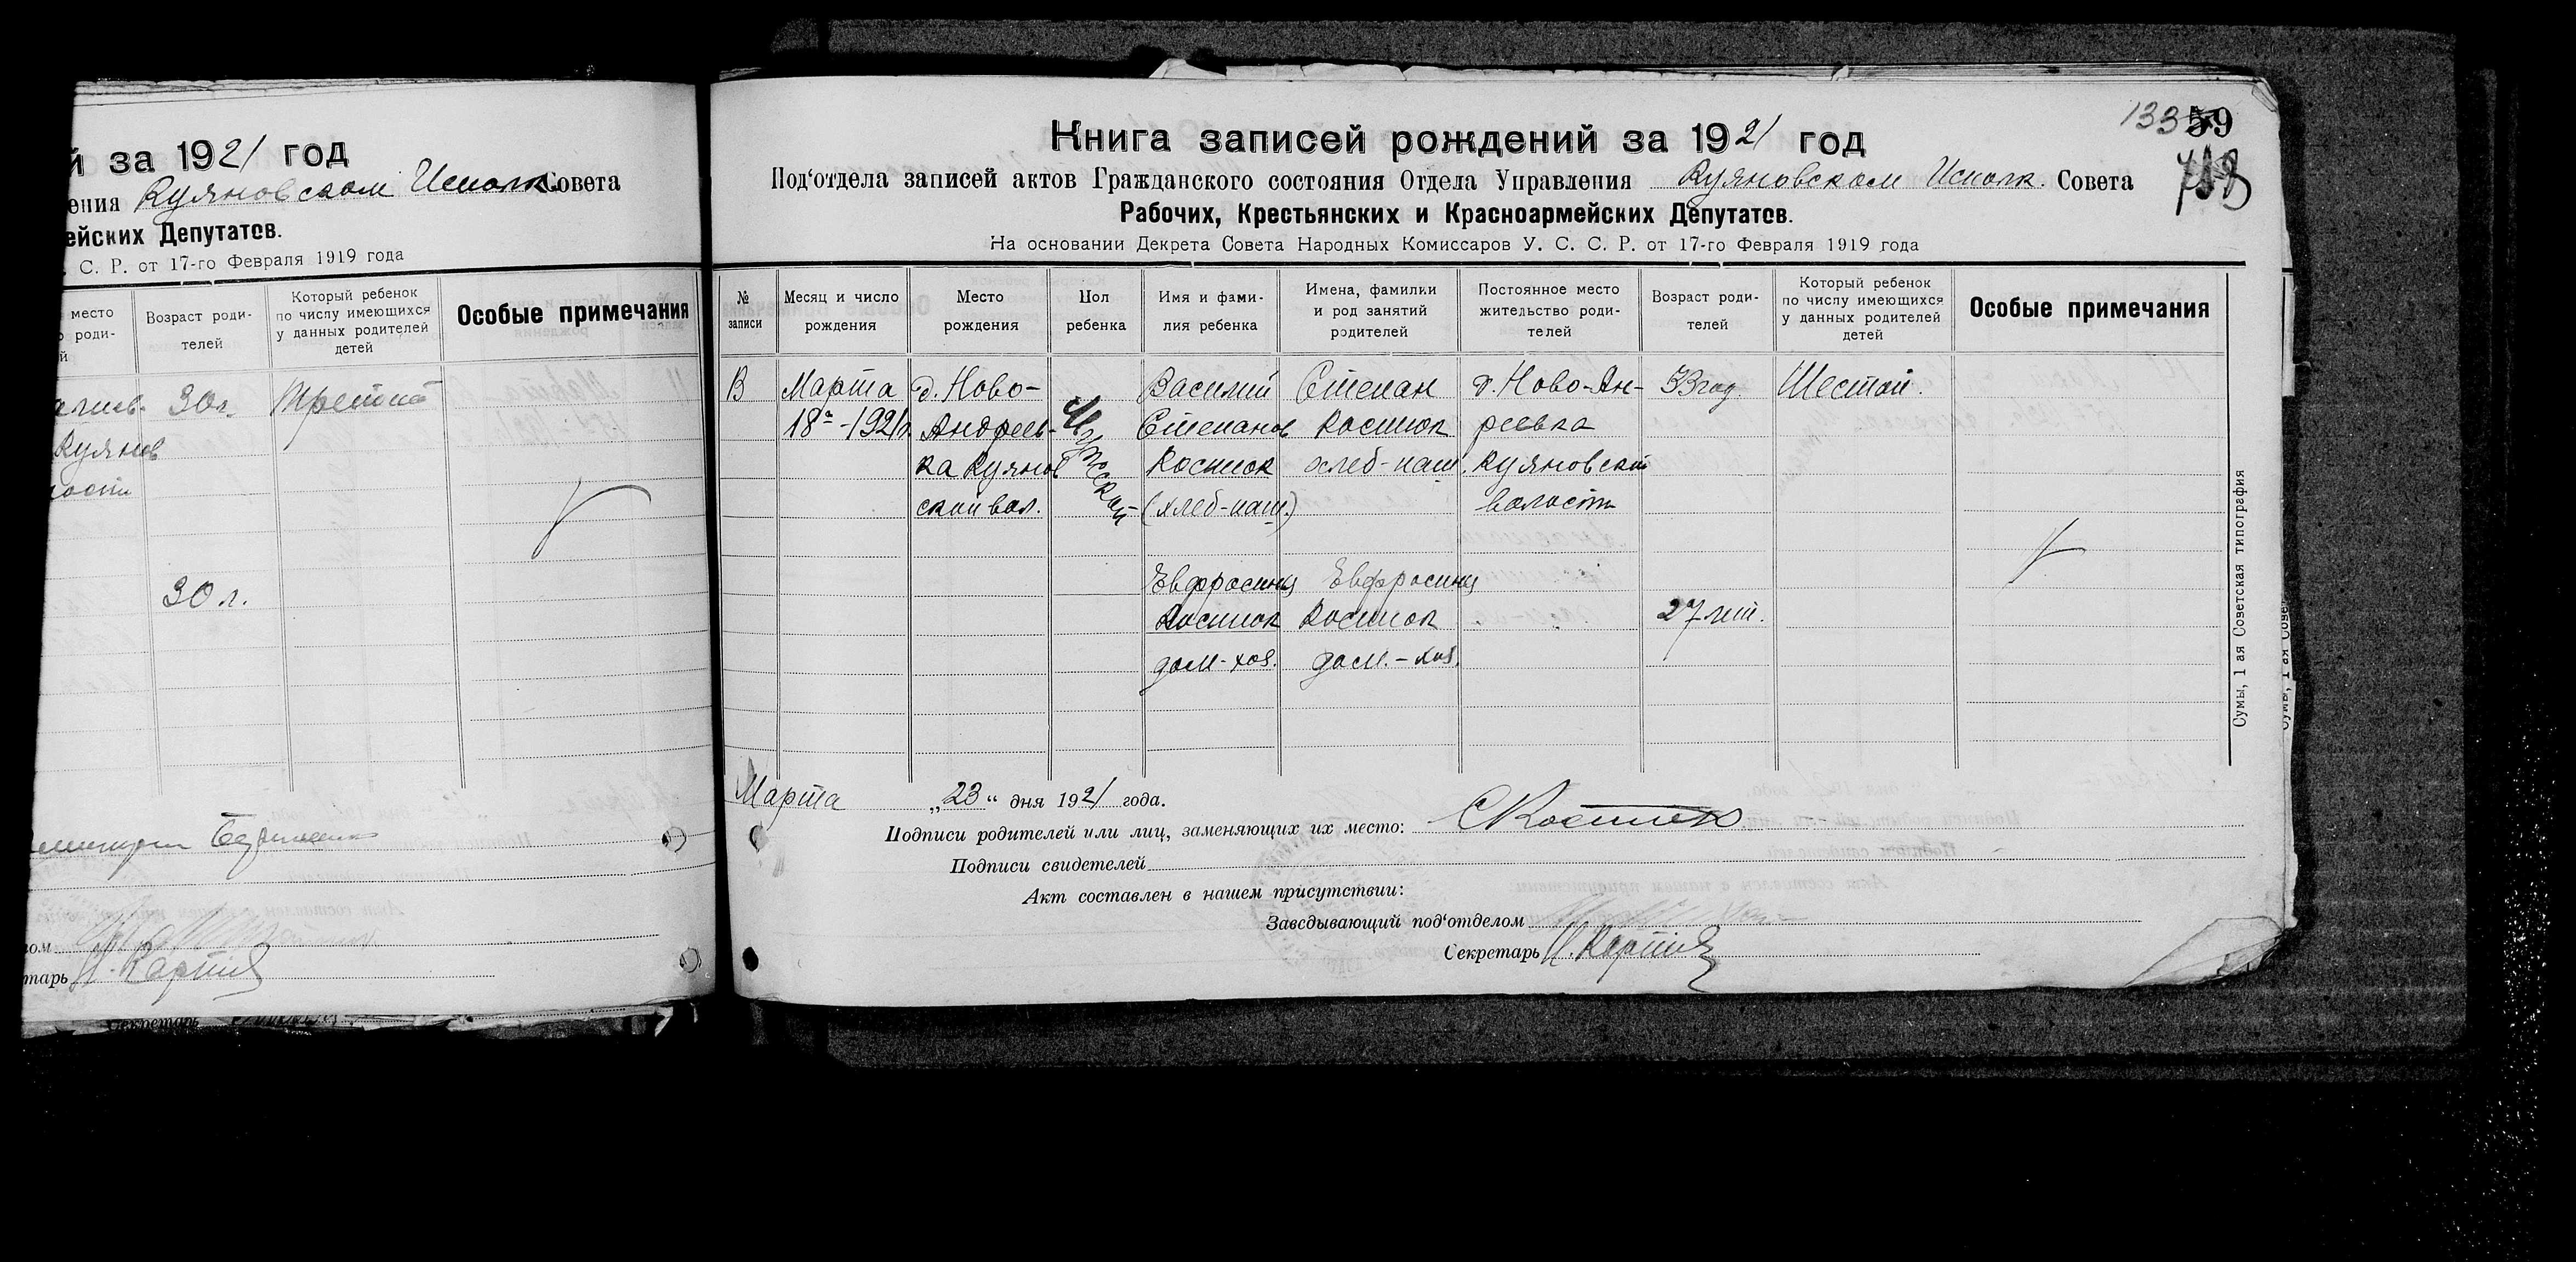 й за 1921 год
ения Куяновском Исполк. Совета
ейских Депутатов.
. С. Р. от 17-го Февраля 1919 года
место
роди-
й
Возраст роди-
телей
Который ребенок
по числу имеющихся
у данных родителей
детей
Особые примечания
30 л.
Третий
Куянов
ости
30 л.
том
тарь
Секретарь
133 59
Книга записей рождений за 1921 год
Под'отдела записей актов Гражданского состояния Отдела Управления Куяновском Исполк. Совета
Рабочих, Крестьянских и Красноармейских Депутатов.
На основании Декрета Совета Народных Комиссаров У. С. С. Р. от 17-го Февраля 1919 года
№
записи
Месяц и число
рождения
Место
рождения
Пол
ребенка
Имя и фами-
лия ребенка
Имена, фамилии
и род занятий
родителей
Постоянное место
жительство роди-
телей
Возраст роди-
телей
Который ребенок
по числу имеющихся
у данных родителей
детей
Особые примечания
В
Марта
18а - 1921 г.
д. Ново-
Андреев-
ка Куянов
ской вол.
Мужской
Василий
Степанов
Костюк
(хлеб-паш.)
Евфросины
Костюк
дом-хоз.
Степан
Костюк
хлеб-паш.
Евфросины
Костюк
дом.-хоз.
д. Ново-Ан-
реевка
Куяновской
волости
33 год.
27 лет.
Шестой.
Марта „23“ дня 1921 года.
Подписи родителей или лиц, заменяющих их место: С Костюк
Подписи свидетелей
Акт составлен в нашем присутствии:
Заведывающий под'отделом
Секретарь
Сумы, 1 ая Советская типография